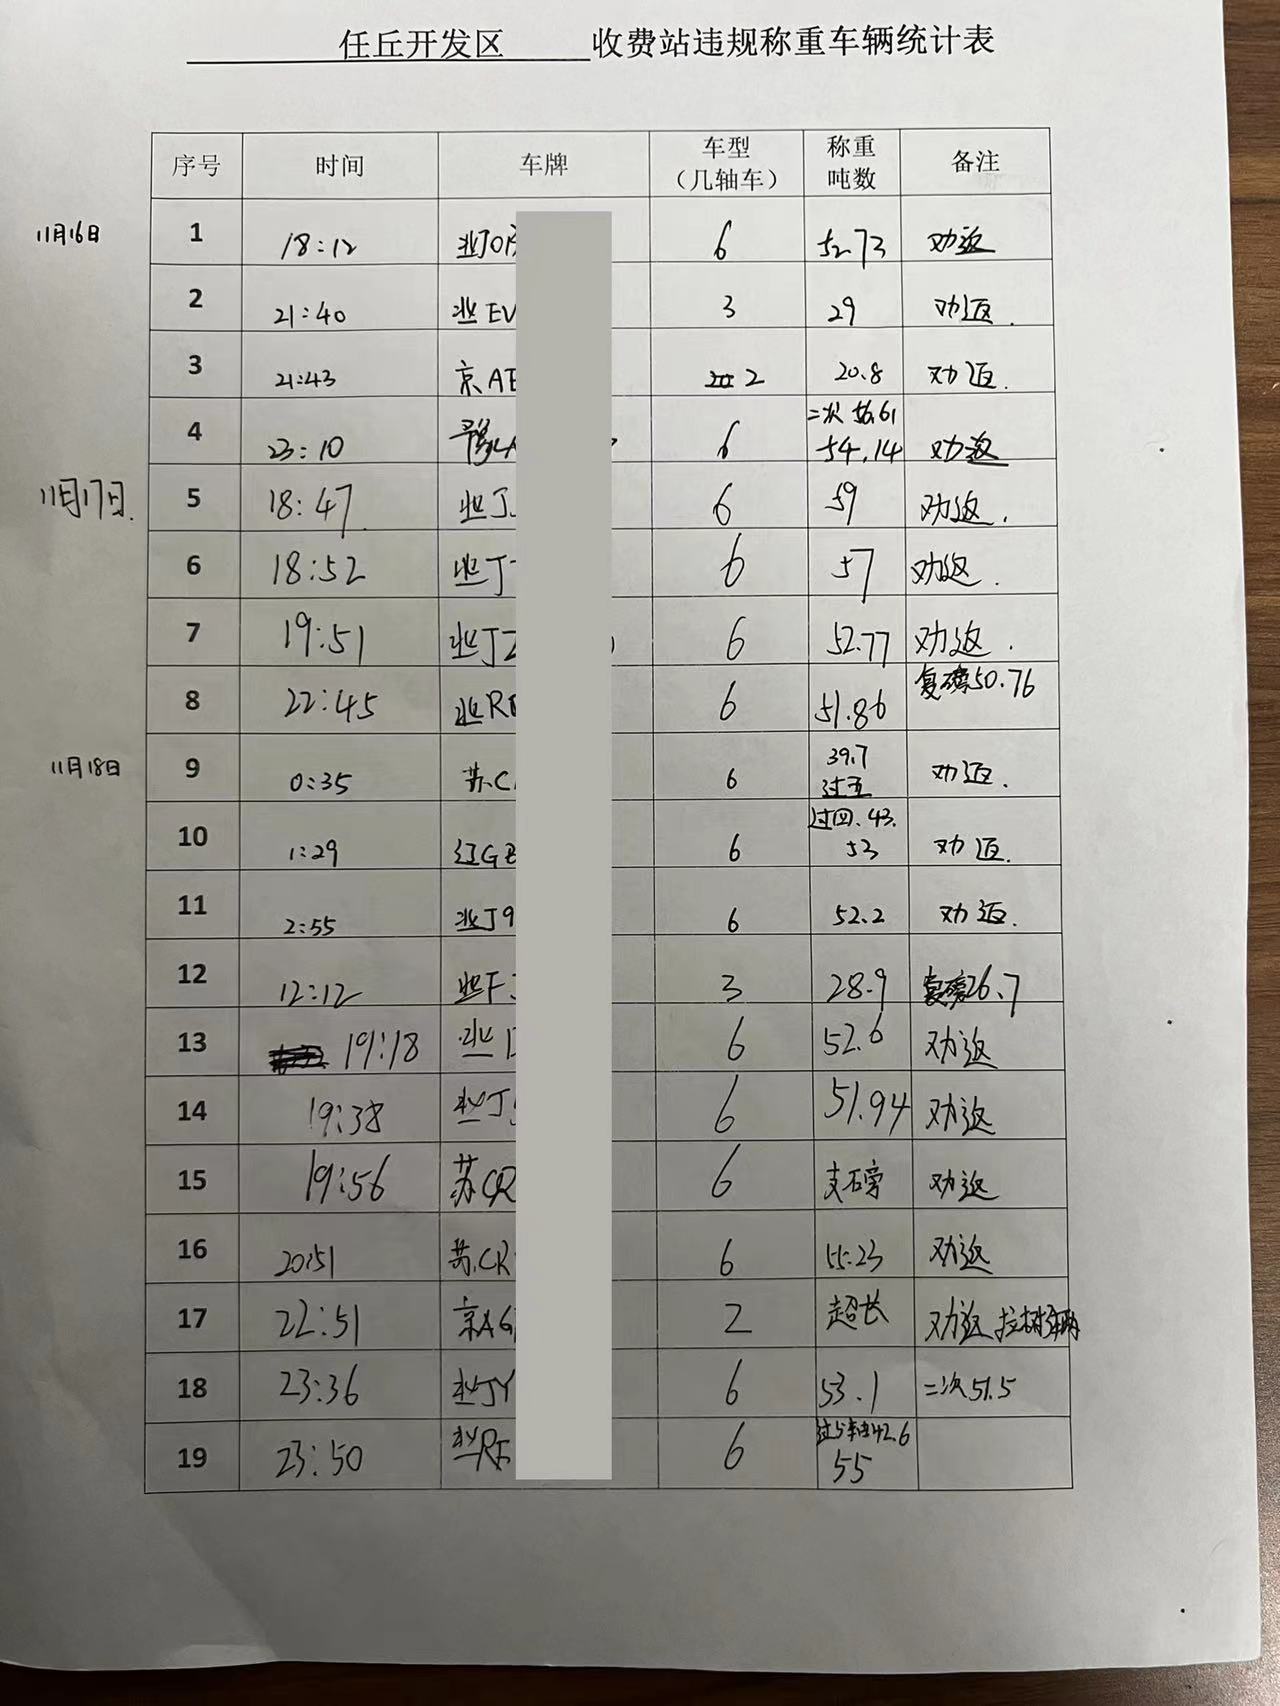 任丘开发区 收费站违规称重车辆统计表
序号 时间 车牌 车型（几轴车） 称重吨数 备注
11月16日 1 18:12 冀J 6 52.73 劝返
2 21:40 冀EV 3 29 劝返.
3 21:43 京AE 2 20.8 劝返.
二次 56.61
4 23:10 豫 6 54.14 劝返
11月17日. 5 18:47. 冀J. 6 59 劝返.
6 18:52 冀J 6 57 劝返.
7 19:51 冀JZ 6 52.77 劝返.
8 22:45 冀R 6 51.86 复磅50.76
11月18日 9 0:35 苏C 6 39.7 过五 劝返.
过四.43.
10 1:29 辽GB 6 53 劝返.
11 2:55 冀J9 6 52.2 劝返.
12 12:12 冀F 3 28.9 复磅26.7
13 19:18 冀 6 52.6 劝返
14 19:38 冀J 6 51.94 劝返
15 19:56 苏CR 6 支磅 劝返
16 20:51 苏.CR 6 55.23 劝返
17 22:51 京AG 2 超长 劝返 拉树车辆
18 23:36 冀JY 6 53.1 二次51.5
过5轴42.6
19 23:50 冀RF 6 55